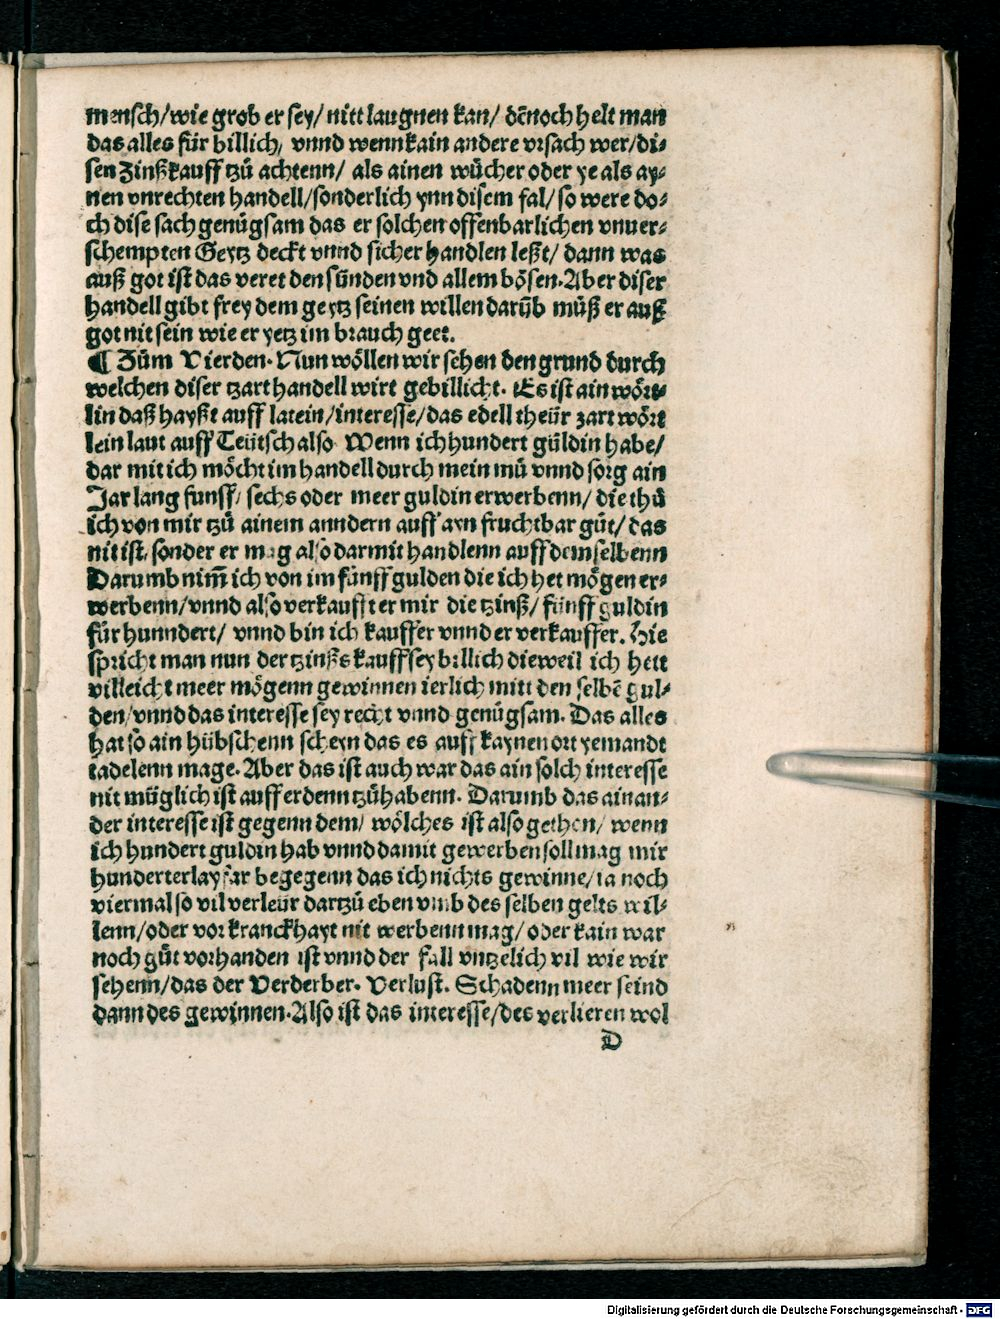 mensch/wie grob er sey/ nitt laugnen kan/ dēnoch helt man
das alles für billich/ vnnd wenn kain andere vrsach wer/di⸗
sen Zinßkauff tzů achtenn/ als ainen wůcher oder ye als ay⸗
nen vnrechten handell/sonderlich ynn disem fal/ so were do⸗
ch dise sach genůgsam das er solchen offenbarlichen vnuer⸗
schempten Geytz deckt vnnd sicher handlen leßt/ dann was
auß got ist das veret den sünden vnd allem bösen. Aber diser
handell gibt frey dem geytz seinen willen darūb můß er auß
got nit sein wie er yetz im brauch geet.
¶ Zům Vierden. Nun wöllen wir sehen den grund durch
welchen diser tzart handell wirt gebillicht. Es ist ain wört⸗
lin daß hayßt auff latein/interesse/das edell theür zart wört
lein laut auff Teütsch also Wenn ich hundert güldin habe/
dar mit ich möcht im handell durch mein mü vnnd sorg ain
Jar lang funff/ sechs oder meer guldin erwerbenn/ die thů
ich von mir tzů ainem anndern auff ayn fruchtbar gůt/ das
nit ist, sonder er mag also darmit handlenn auff dem selbenn
Darumb nim̄ ich von im fünff gulden die ich het mögen er⸗
werbenn/vnnd also verkaufft er mir die tzinß/ fünff guldin
für hunndert/ vnnd bin ich kauffer vnnd er verkauffer. Hie
spricht man nun der tzinßkauff sey billich dieweil ich hett
villeicht meer mögenn gewinnen ierlich mitt den selbē gul⸗
den/vnnd das interesse sey recht vnnd genůgsam. Das alles
hat so ain hübschenn scheyn das es auff kaynen ort yemandt
tadelenn mage. Aber das ist auch war das ain solch interesse
nit müglich ist auff erdenn tzůhabenn. Darumb das ain an⸗
der interesse ist gegenn dem/ wölches ist also gethon/ wenn
ich hundert guldin hab vnnd damit gewerben soll mag mir
hunderterlay far begegenn das ich nichts gewinne/ ia noch
viermal so vil verleür dartzů eben vmb des selben gelts wil⸗
lenn/oder vor kranckhayt nit werbenn mag/ oder kain war
noch gůt vorhanden ist vnnd der fall vntzelich vil wie wir
sehenn/das der Verderber. Verlust. Schadenn meer seind
dann des gewinnen. Also ist das interesse/des verlieren wol
D
Digitalisierung gefördert durch die Deutsche Forschungsgemeinschaft - DFG